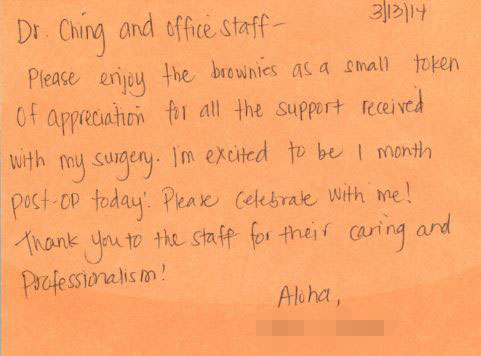 3/13/14
Dr. Ching and office staff-
Please enjoy the brownies as a small token
of appreciation for all the support received
with my surgery. I'm excited to be 1 month
post-op today! Please celebrate with me!
Thank you to the staff for their caring and
professionalism!
Aloha,